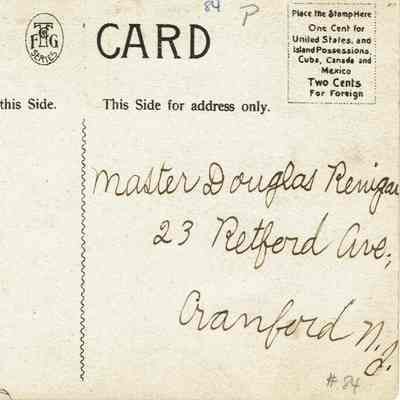 84 P
TCG
F G
SERIES
CARD
Place the Stamp Here
One Cent for
United States, and
Island Possessions,
Cuba, Canada and
Mexico
Two Cents
For Foreign
this Side.
This Side for address only.
Master Douglas
23 Retford Ave,
Cranford N.J.
# 84